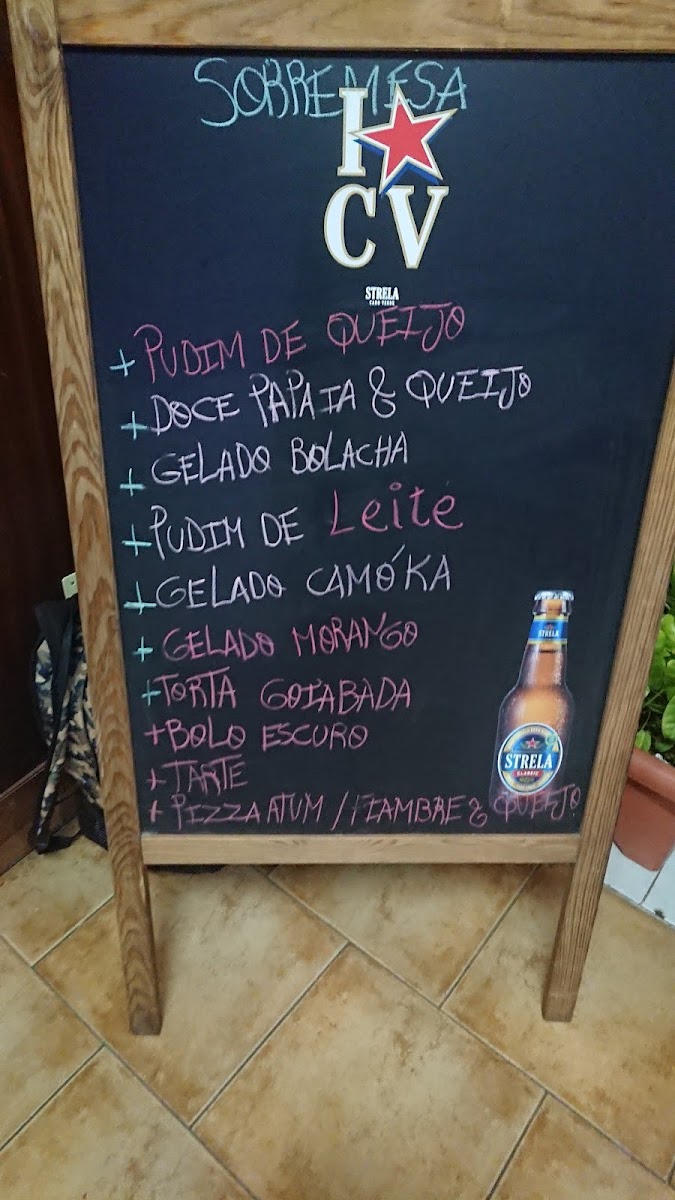 SOBREMESA
I
CV
STRELA
CABO VERDE
+ PUDIM DE QUEIJO
+ DOCE PAPAIA & QUEIJO
+ GELADO BOLACHA
+ PUDIM DE Leite
+ GELADO CAMÓKA
+ GELADO MORANGO
+ TORTA GOIABADA
+ BOLO ESCURO
+ TARTE
+ PIZZA ATUM / FIAMBRE & QUEIJO
STRELA
STRELA
CLASSIC